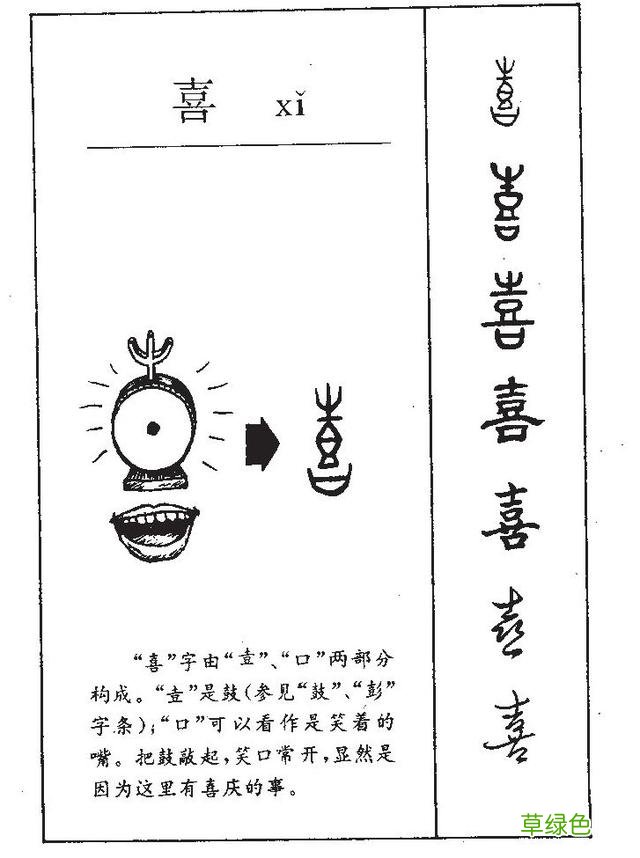 喜 xǐ
“喜”字由“壴”、“口”两部分
构成。“壴”是鼓(参见“鼓”、“彭”
字条);“口”可以看作是笑着的
嘴。把鼓敲起,笑口常开,显然是
因为这里有喜庆的事。
喜
喜
喜
喜
喜
喜
喜
喜
草绿色